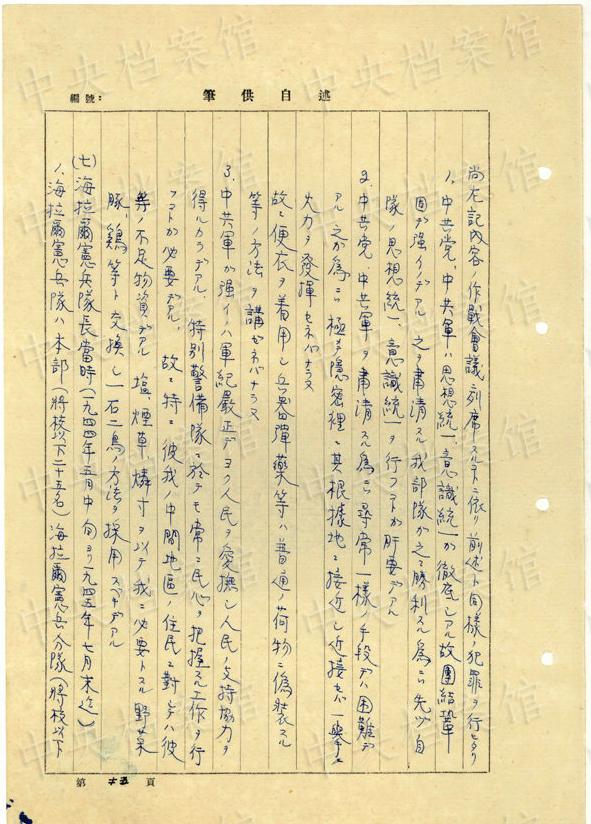 編號：
筆供自述
尚左記內容、作戰會議ニ列席スルトニ依リ前述ト同樣ノ犯罪ヲ行ヒタリ
1、中共党、中共軍ハ思想統一、意識統一ガ徹底シアル故團結鞏
固デ强イデアル 之ヲ肅清スル我部隊ガ之ニ勝利スル為ニハ先ヅ自
隊ノ思想統一、意識統一ヲ行フコトガ肝要デアル
2、中共党、中共軍ヲ肅清スル為ニハ尋常一樣ノ手段デハ困難デ
アル 之ガ為ニハ極メテ隱密裡ニ其根據地ニ接近シ近接セバ一擧ニ
火力ヲ發揮セネバナラヌ
故ニ便衣ヲ着用シ兵器彈藥等ハ普通ノ荷物ニ偽裝スル
等ノ方法ヲ講ゼネバナラヌ
3、中共軍ガ强イノハ軍紀嚴正デヨク人民ヲ愛撫シ人民ノ支持協力ヲ
得ルカラデアル、特別警備隊ニ於テモ常ニ民心ヲ把握スル工作ヲ行
フコトガ必要デアル、故ニ特ニ彼我ノ中間地區ノ住民ニ對シテハ彼
等ノ不足物資デアル 塩、煙草、燐寸ヲ以テ我ニ必要トスル野菜
豚、鶏等ト交換シ一石二鳥ノ方法ヲ採用スベキデアル
(七)海拉爾憲兵隊長當時(一九四四年五月中旬ヨリ一九四五年七月末迄)
1、海拉爾憲兵隊ハ本部(將校以下二十五名)海拉爾憲兵分隊(將校以下
第 頁
中央档案馆